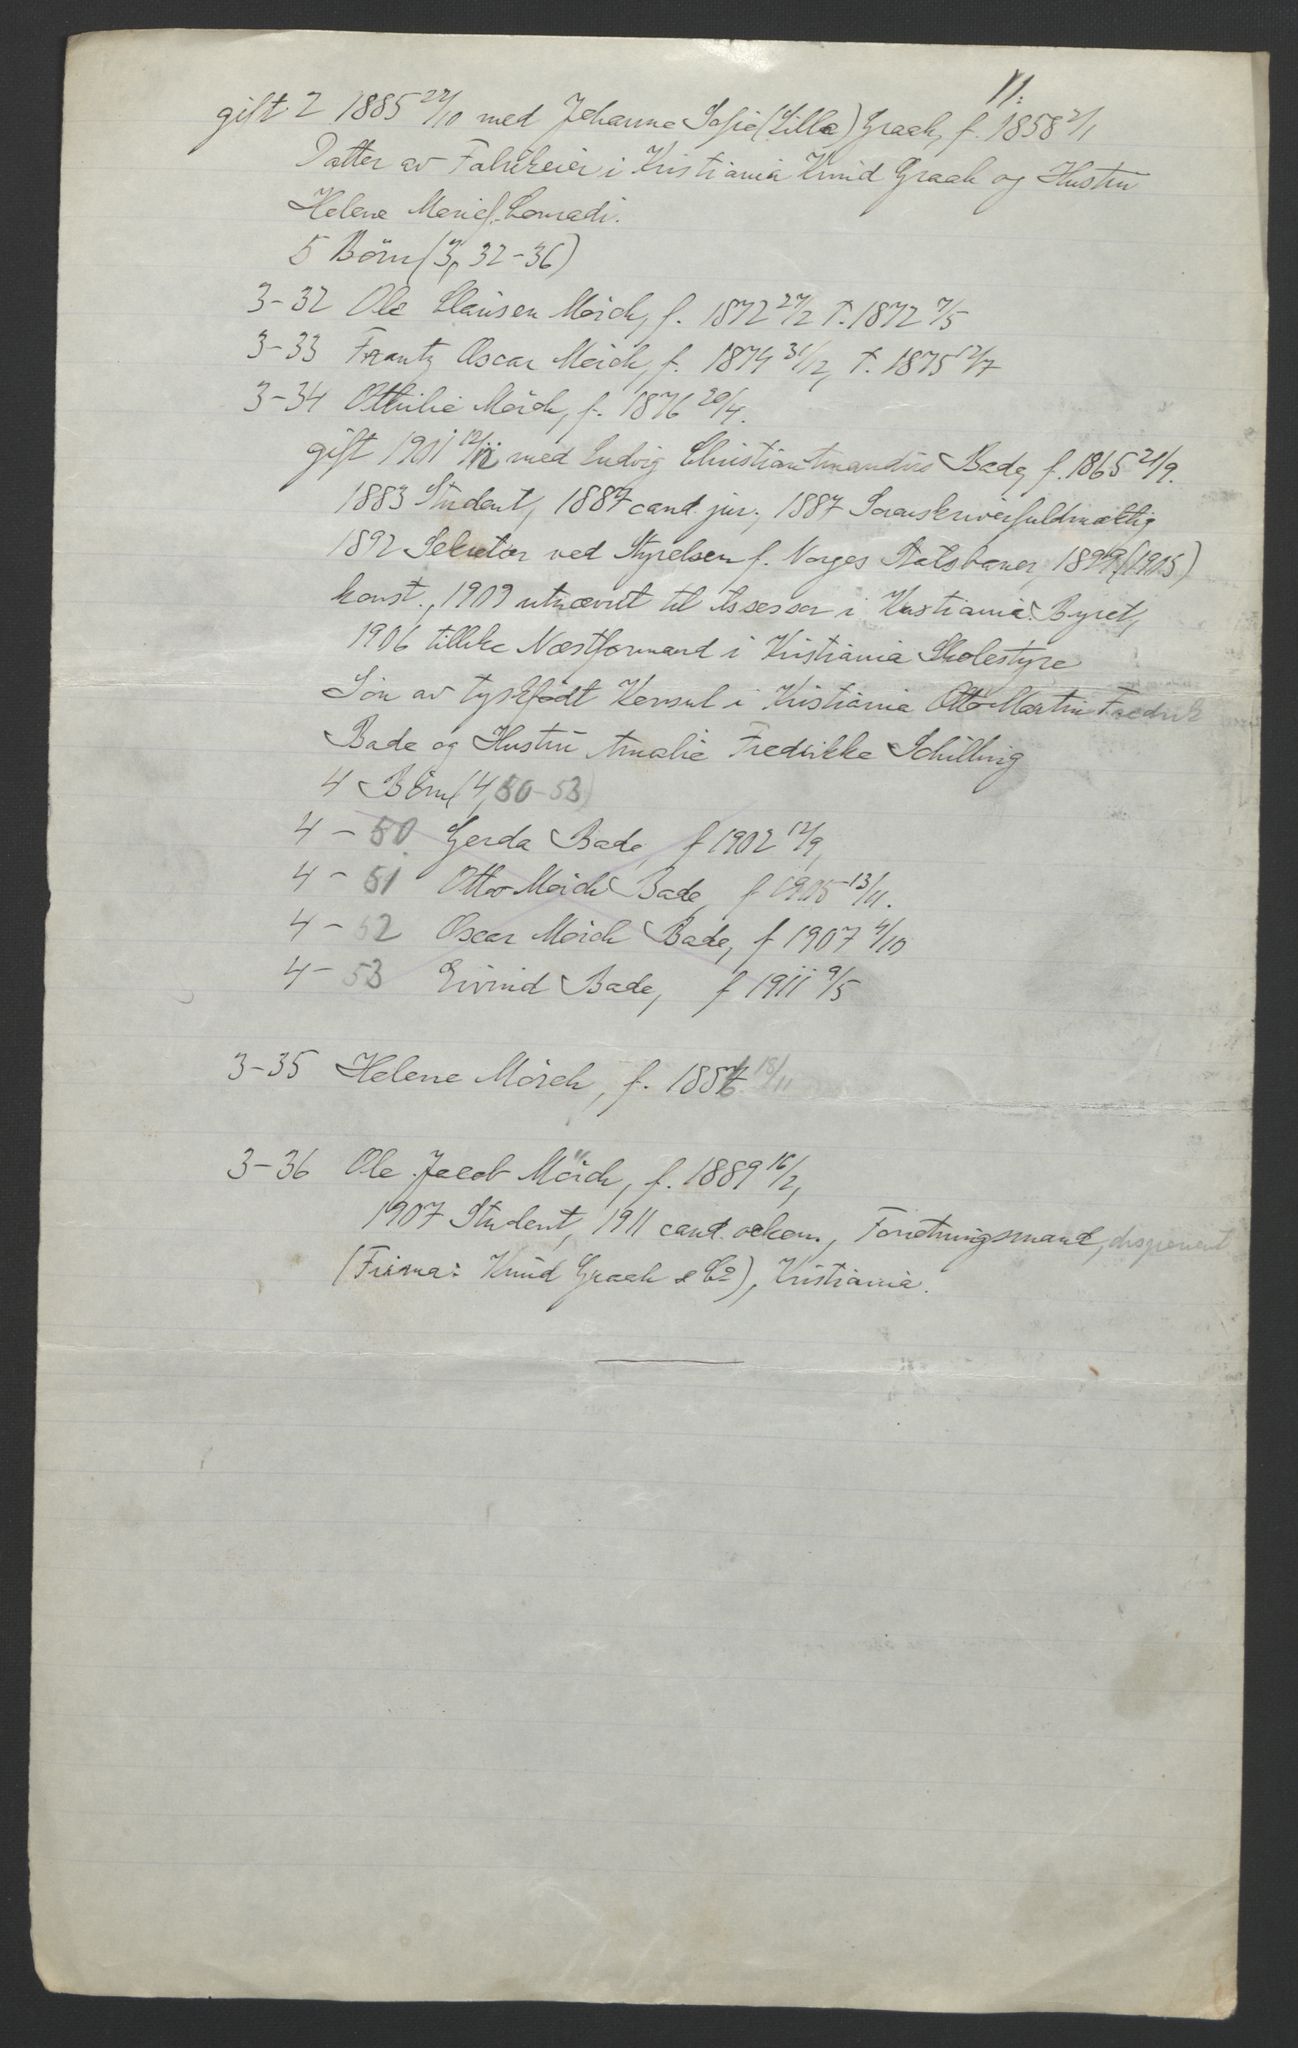 11.
gift 2 1885 27/10 med Johanne Sofie (Lilla) Graah, f. 1858 2/1
Datter av Fabrikeier i Kristiania Knud Graah og Hustru
Helene Marie f. Conradi.
5 Börn (3, 32-36)
3-32 Ole Clausen Mörch, f. 1872 27/2 †. 1872 7/5
3-33 Frantz Oscar Mörch, f. 1874 31/12, †. 1875 12/7
3-34 Othilie Mörch, f. 1876 20/4.
gift 1901 12/12 med Ludvig Christian Amandus Bade, f. 1865 21/9.
1883 Student, 1887 cand. jur., 1887 Sorenskriverfuldmægtig
1892 Sekretær ved Styrelsen f. Norges Statsbaner, 1899 (1905)
konst., 1909 utnævnt til Assessor i Kristiania Byret,
1906 tillike Næstformand i Kristiania Skolestyre
Sön av tyskfödt Konsul i Kristiania Otto Martin Fredrik
Bade og Hustru Amalie Fredrikke Schilling
4 Börn (4, 50-53)
4-50 Gerda Bade, f 1902 12/9,
4-51 Otto Mörch Bade, f 1905 13/11.
4-52 Oscar Mörch Bade, f 1907 4/10
4-53 Eivind Bade, f 1911 9/5
3-35 Helene Mörch, f. 1886 18/11
3-36 Ole Jacob Mörch, f. 1889 16/2,
1907 Student, 1911 cand. oekon., Forretningsmand, disponent
(Firma: Knud Graah & Co), Kristiania.